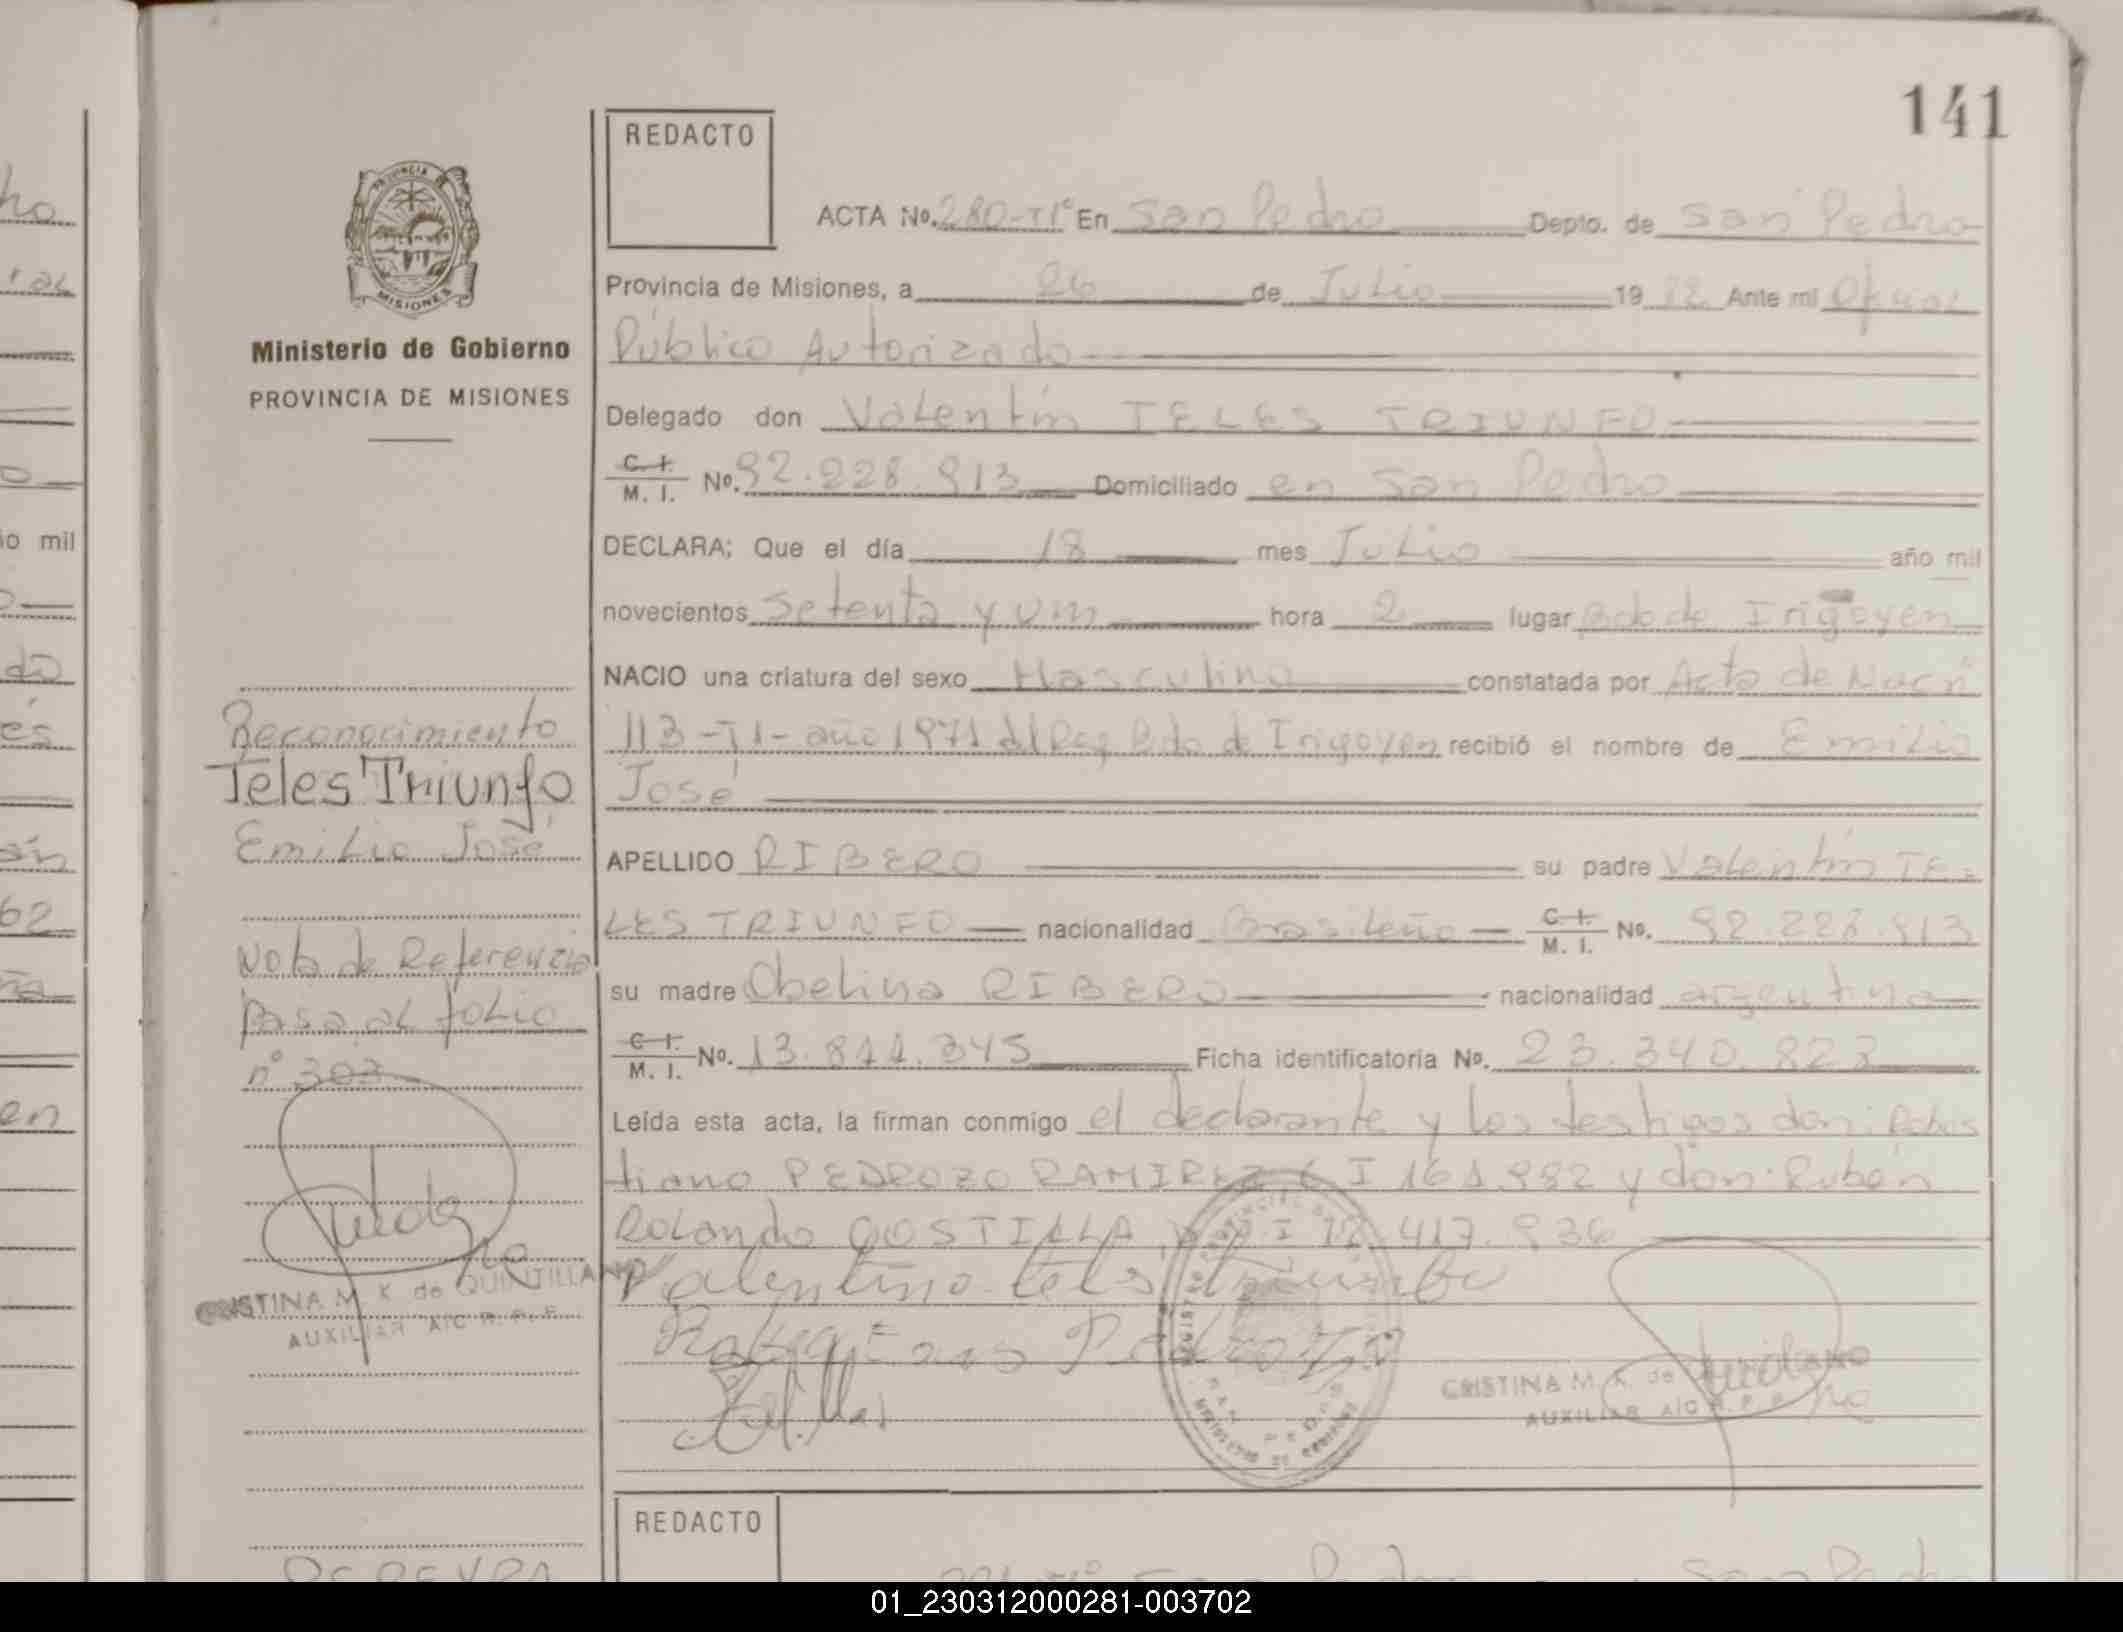 141
REDACTO
ACTA No. 280-T1° En San Pedro Depto. de San Pedro
Provincia de Misiones, a 26 de Julio 19 Ante mi Oficial
Público Autorizado
Ministerio de Gobierno
PROVINCIA DE MISIONES
Delegado don Valentín TELES TRIUNFO
C. I. M. I. No. 92.228.913 Domiciliado en San Pedro
DECLARA; Que el día 18 mes Julio año mil
novecientos Setenta y un hora 2 lugar Bdo de Irigoyen
NACIO una criatura del sexo Masculino constatada por Acta de Nac
113-T1-año 1971 del Reg Bdo de Irigoyen recibió el nombre de Emilio
José
APELLIDO RIBERO su padre Valentín TE=
LES TRIUNFO nacionalidad Brasileña C. I. M. I. No. 92.228.913
su madre RIBERO nacionalidad argentina
C. I. M. I. No. 13.811.345 Ficha identificatoria No. 23.340.823
Leída esta acta, la firman conmigo el declarante y los testigos don: Robus
tiano PEDROZO RAMIREZ C I 161.982 y don: Rubén
Rolando COSTILLA I 417.936
Reconocimiento
Teles Triunfo
Emilio José
Nota de Referencia
Pasa al folio
n° 303
CRISTINA M. K. de QUINTILLANO
AUXILIAR A/C R. P. P.
CRISTINA M. K. de
AUXILIAR A/C R. P. P.
REDACTO
ho
io mil
62
en
01_230312000281-003702